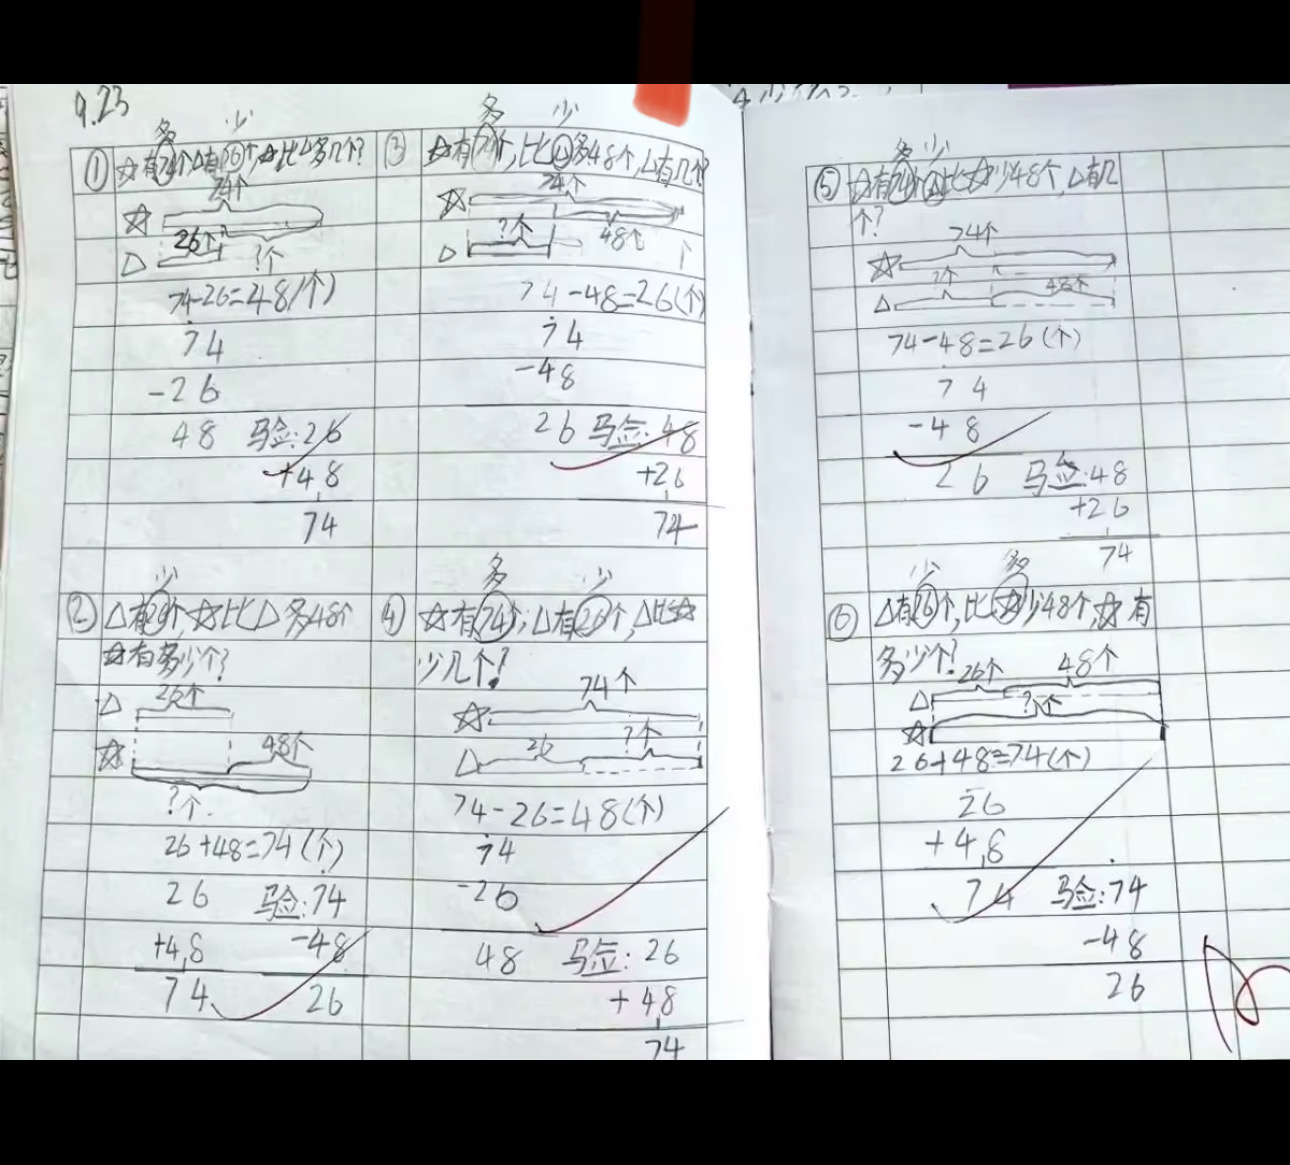 9.23
多 少
① ☆有74个△有26个,☆比△多几个?
74个
☆
26个 ?个
△
74-26=48(个)
74
-26
48 验:26
+48
74
少
② △有26个,☆比△多48个
☆有多少个?
26个
△
48个
☆
?个
26+48=74(个)
26 验:74
+48 -48
74 26
多 少
③ ☆有74个,比△多48个,△有几个?
74个
☆
?个 48个
△
74-48=26(个)
74
-48
26 验:48
+26
74
多 少
④ ☆有74个;△有26个,△比☆
少几个?
74个
☆
26 ?个
△
74-26=48(个)
74
-26
48 验:26
+48
74
多 少
⑤ ☆有74个△比☆少48个,△有几
个?
74个
☆
?个 48个
△
74-48=26(个)
74
-48
26 验:48
+26
74
少 多
⑥ △有26个,比☆少48个,☆有
多少个?
26个 48个
△
?个
☆
26+48=74(个)
26
+48
74 验:74
-48
26